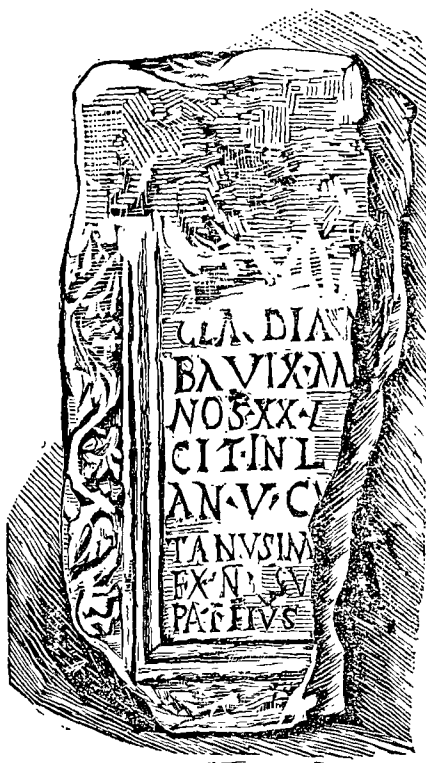 CLA DIA
BA VIX·AN
NOS·XX·L
CIT·IN L
AN·V·C
TANVS IM
EX·N SV
PATHVS